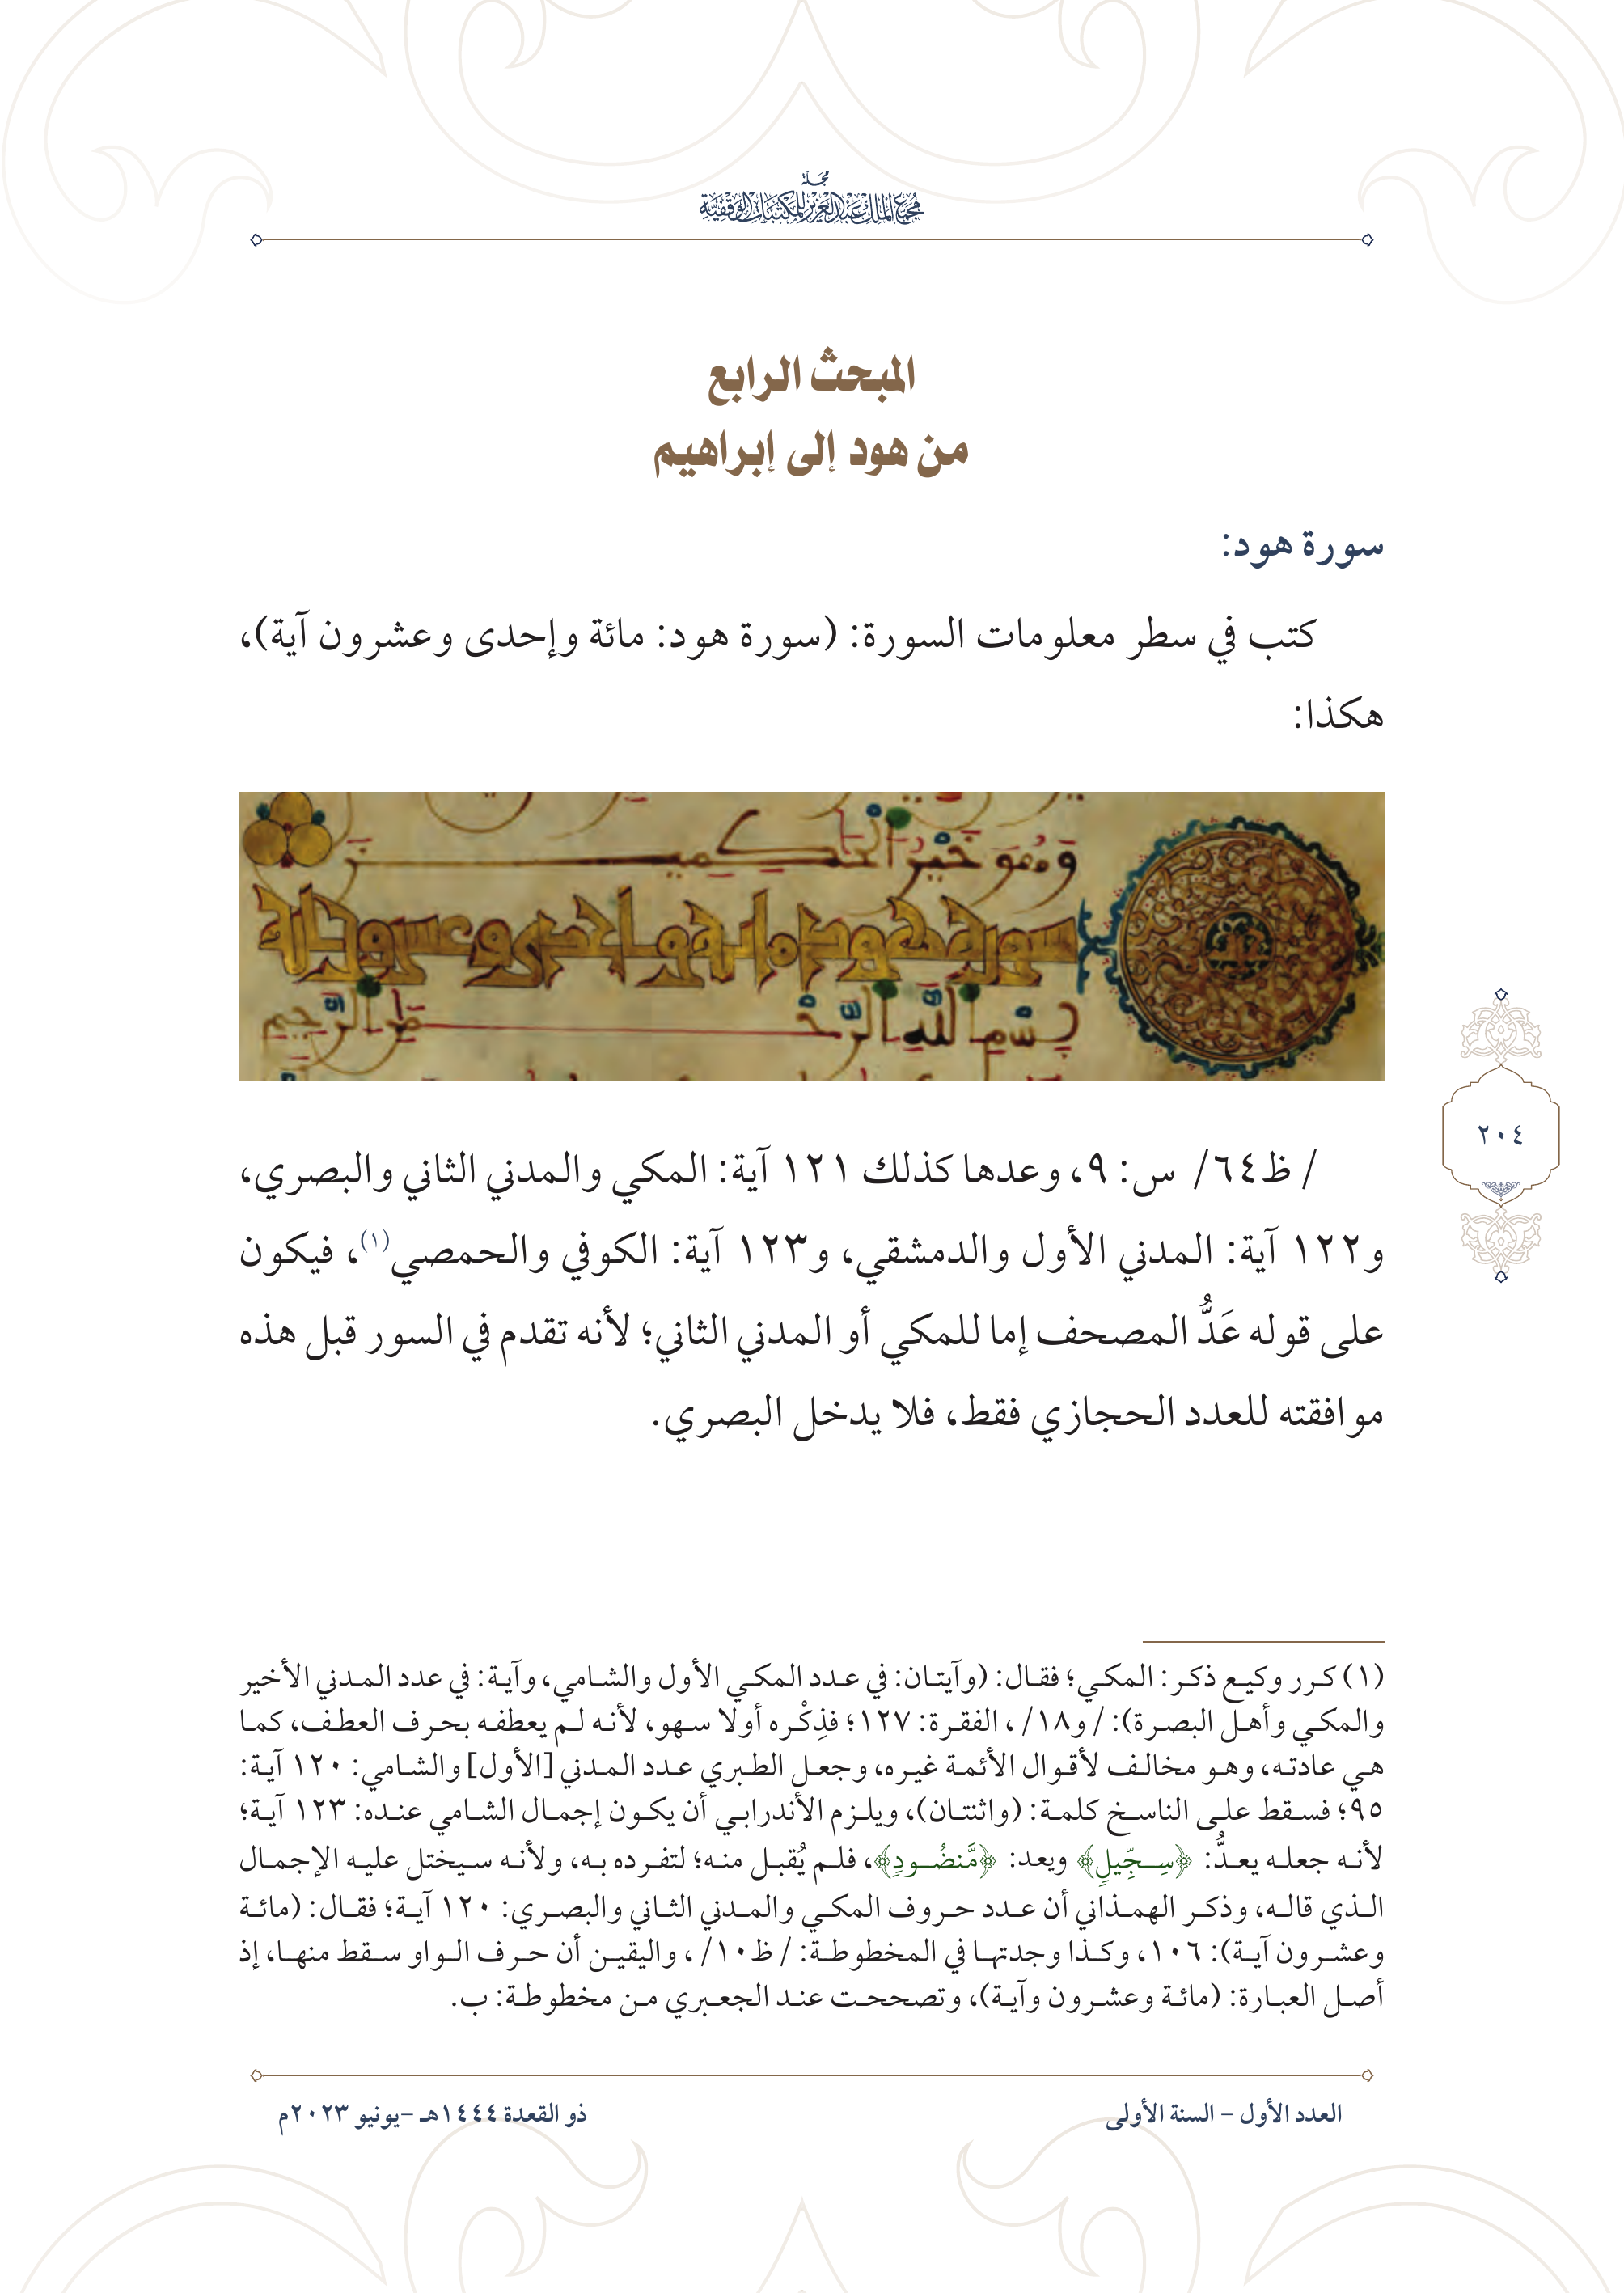 مجلة
مجمع الملك عبدالعزيز للمكتبات الوقفية
المبحث الرابع
من هود إلى إبراهيم
سورة هود:
كتب في سطر معلومات السورة: (سورة هود: مائة وإحدى وعشرون آية)،
هكذا:
وَهُوَ خَيْرُ الْحَكِمِينَ
سورة هود مائة واحدى وعسرون اية
بِسْمِ اللَّهِ الرَّحْمَنِ الرَّحِيمِ
/ ظ٦٤/ س: ٩، وعدها كذلك ١٢١ آية: المكي والمدني الثاني والبصري،
و١٢٢ آية: المدني الأول والدمشقي، و١٢٣ آية: الكوفي والحمصي(١)، فيكون
على قوله عَدُّ المصحف إما للمكي أو المدني الثاني؛ لأنه تقدم في السور قبل هذه
موافقته للعدد الحجازي فقط، فلا يدخل البصري.
٢٠٤
(١) كرر وكيع ذكر: المكي؛ فقال: (وآيتان: في عدد المكي الأول والشامي، وآية: في عدد المدني الأخير
والمكي وأهل البصرة): / و١٨/ ، الفقرة: ١٢٧؛ فذِكْره أولا سهو، لأنه لم يعطفه بحرف العطف، كما
هي عادته، وهو مخالف لأقوال الأئمة غيره، وجعل الطبري عدد المدني [الأول] والشامي: ١٢٠ آية:
٩٥؛ فسقط على الناسخ كلمة: (واثنتان)، ويلزم الأندرابي أن يكون إجمال الشامي عنده: ١٢٣ آية؛
لأنه جعله يعدُّ: ﴿سِجِّيلٍ﴾ ويعد: ﴿مَّنضُودٍ﴾، فلم يُقبل منه؛ لتفرده به، ولأنه سيختل عليه الإجمال
الذي قاله، وذكر الهمذاني أن عدد حروف المكي والمدني الثاني والبصري: ١٢٠ آية؛ فقال: (مائة
وعشرون آية): ١٠٦، وكذا وجدتها في المخطوطة: / ظ١٠/ ، واليقين أن حرف الواو سقط منها، إذ
أصل العبارة: (مائة وعشرون وآية)، وتصححت عند الجعبري من مخطوطة: ب.
العدد الأول – السنة الأولى
ذو القعدة ١٤٤٤هـ –يونيو ٢٠٢٣م